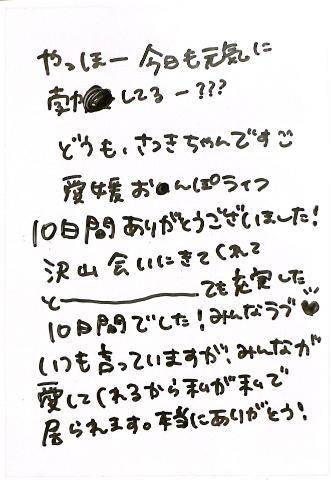 やっほー 今日も元気に
勃●してるー???
どうも、さつきちゃんですご
愛媛 お●んぽライフ
10日間ありがとうございました!
沢山 会いにきてくれて
と――――ても充実した
10日間でした!みんなラブ♥
いつも言っていますが、みんなが
愛してくれるから私が私で
居られます。本当にありがとう!